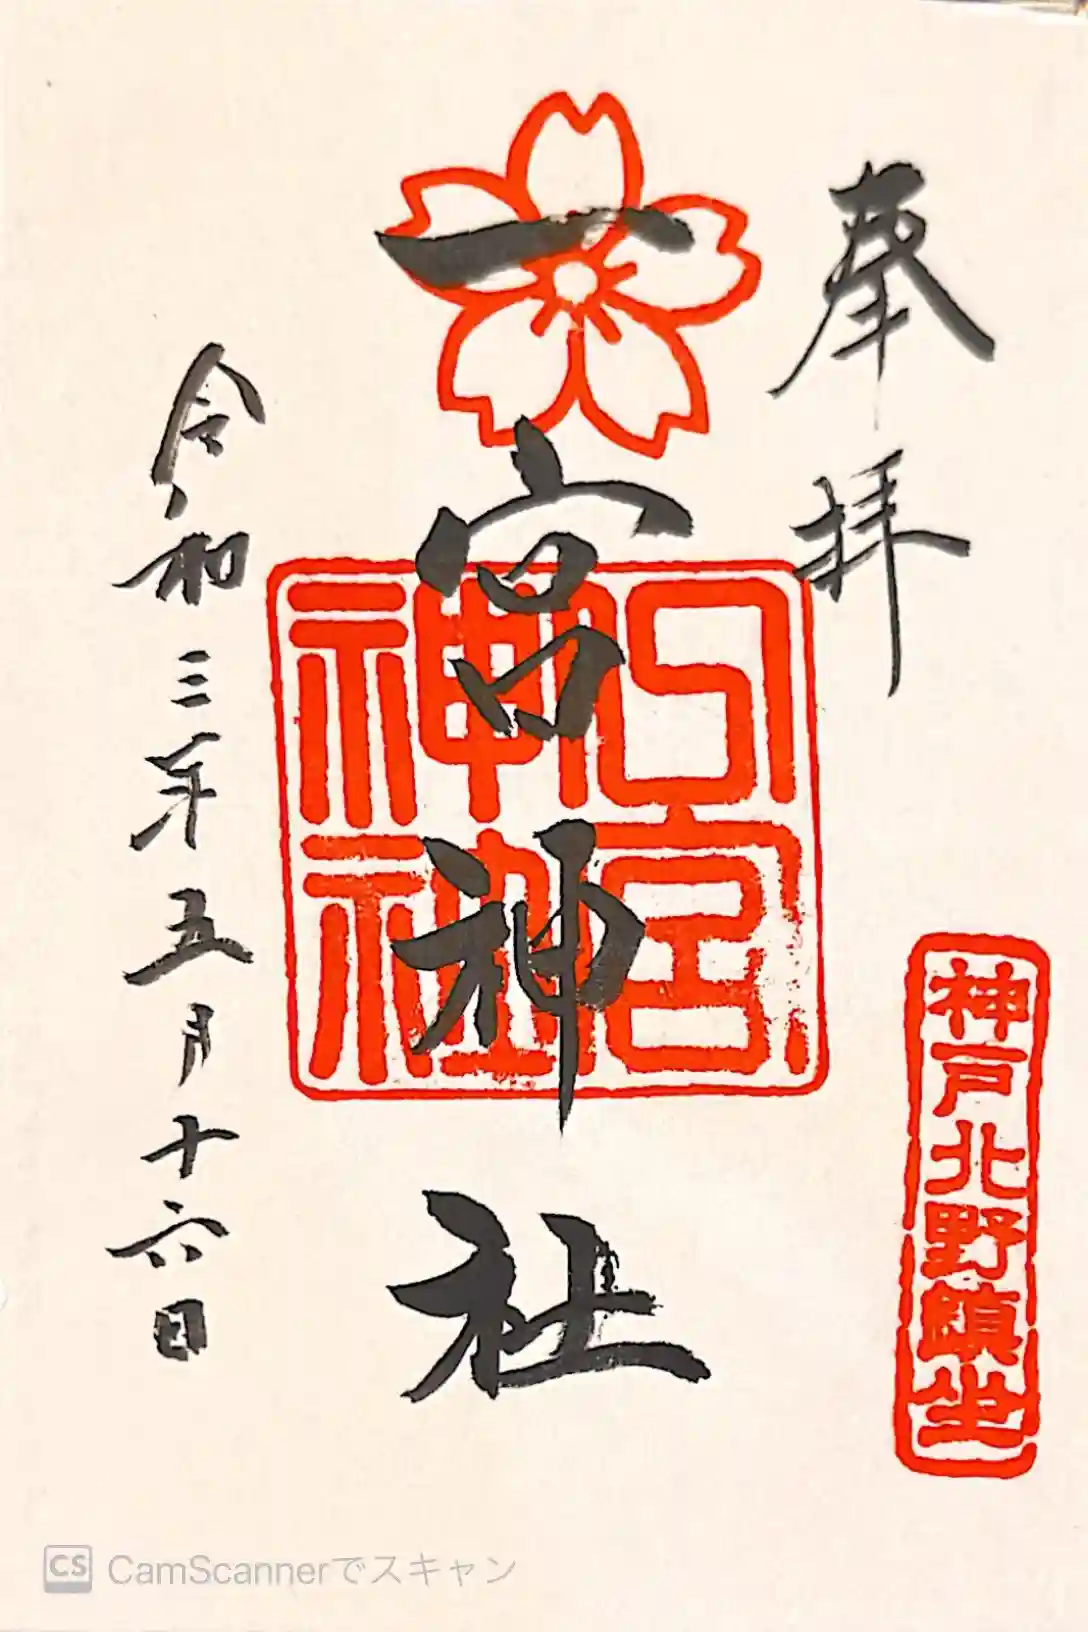 奉拝
神戸北野鎮坐
一宮神社
一宮神社
令和三年五月十六日
CS CamScannerでスキャン